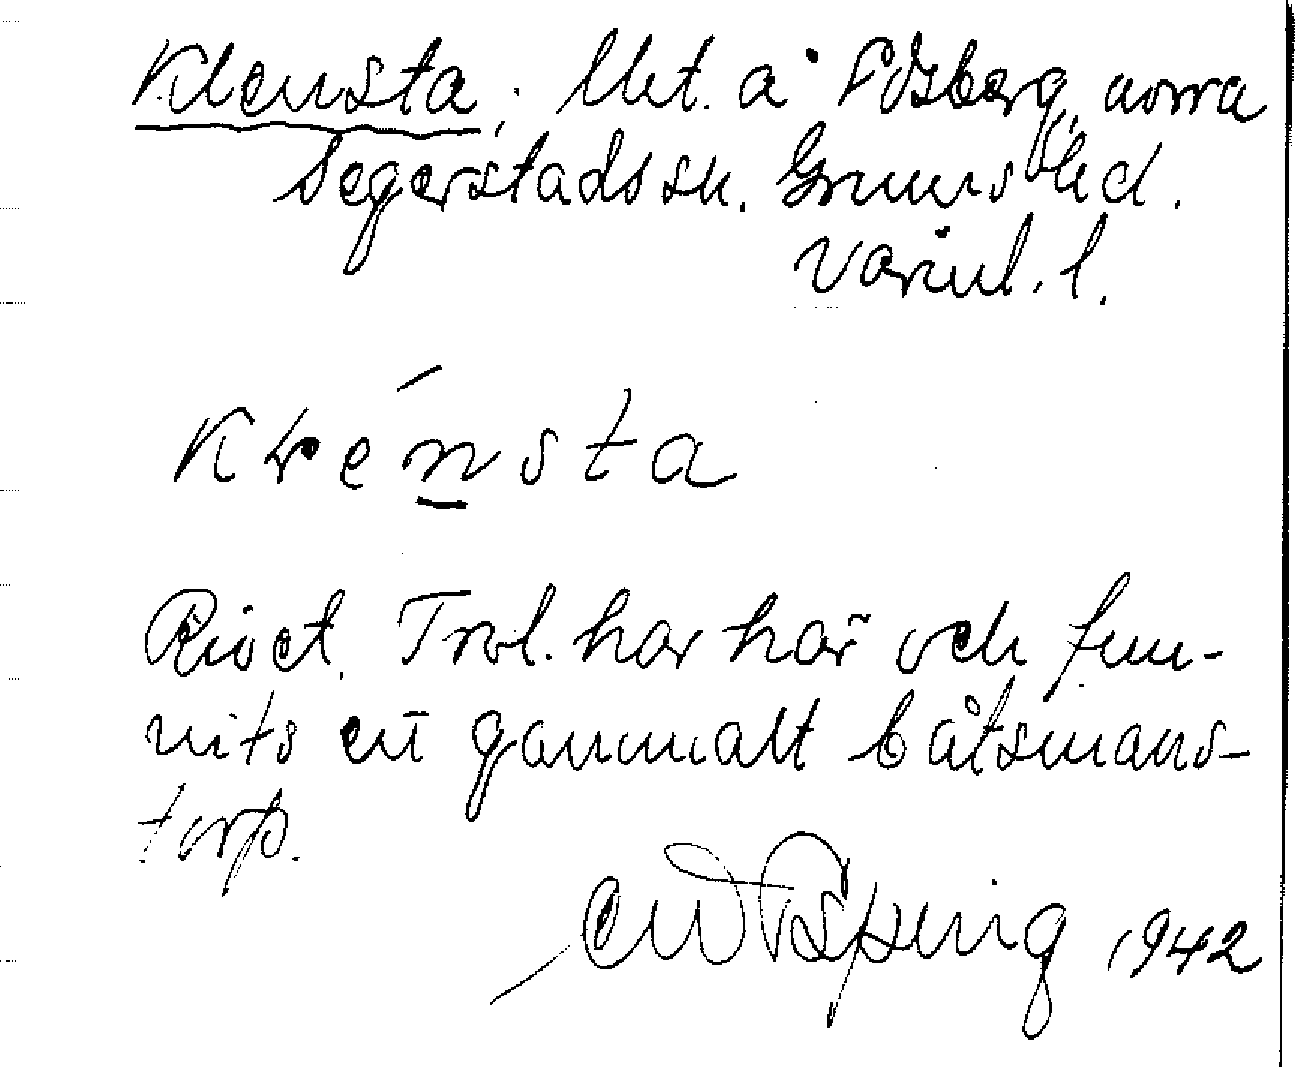 Klensta, Utt. å Fösberg, norra
Segerstads sn. Grums hd.
Värml. l.
Krénsta
Rivet. Trol. har här och fun-
nits en gammalt båtsmans-
torp.
1942